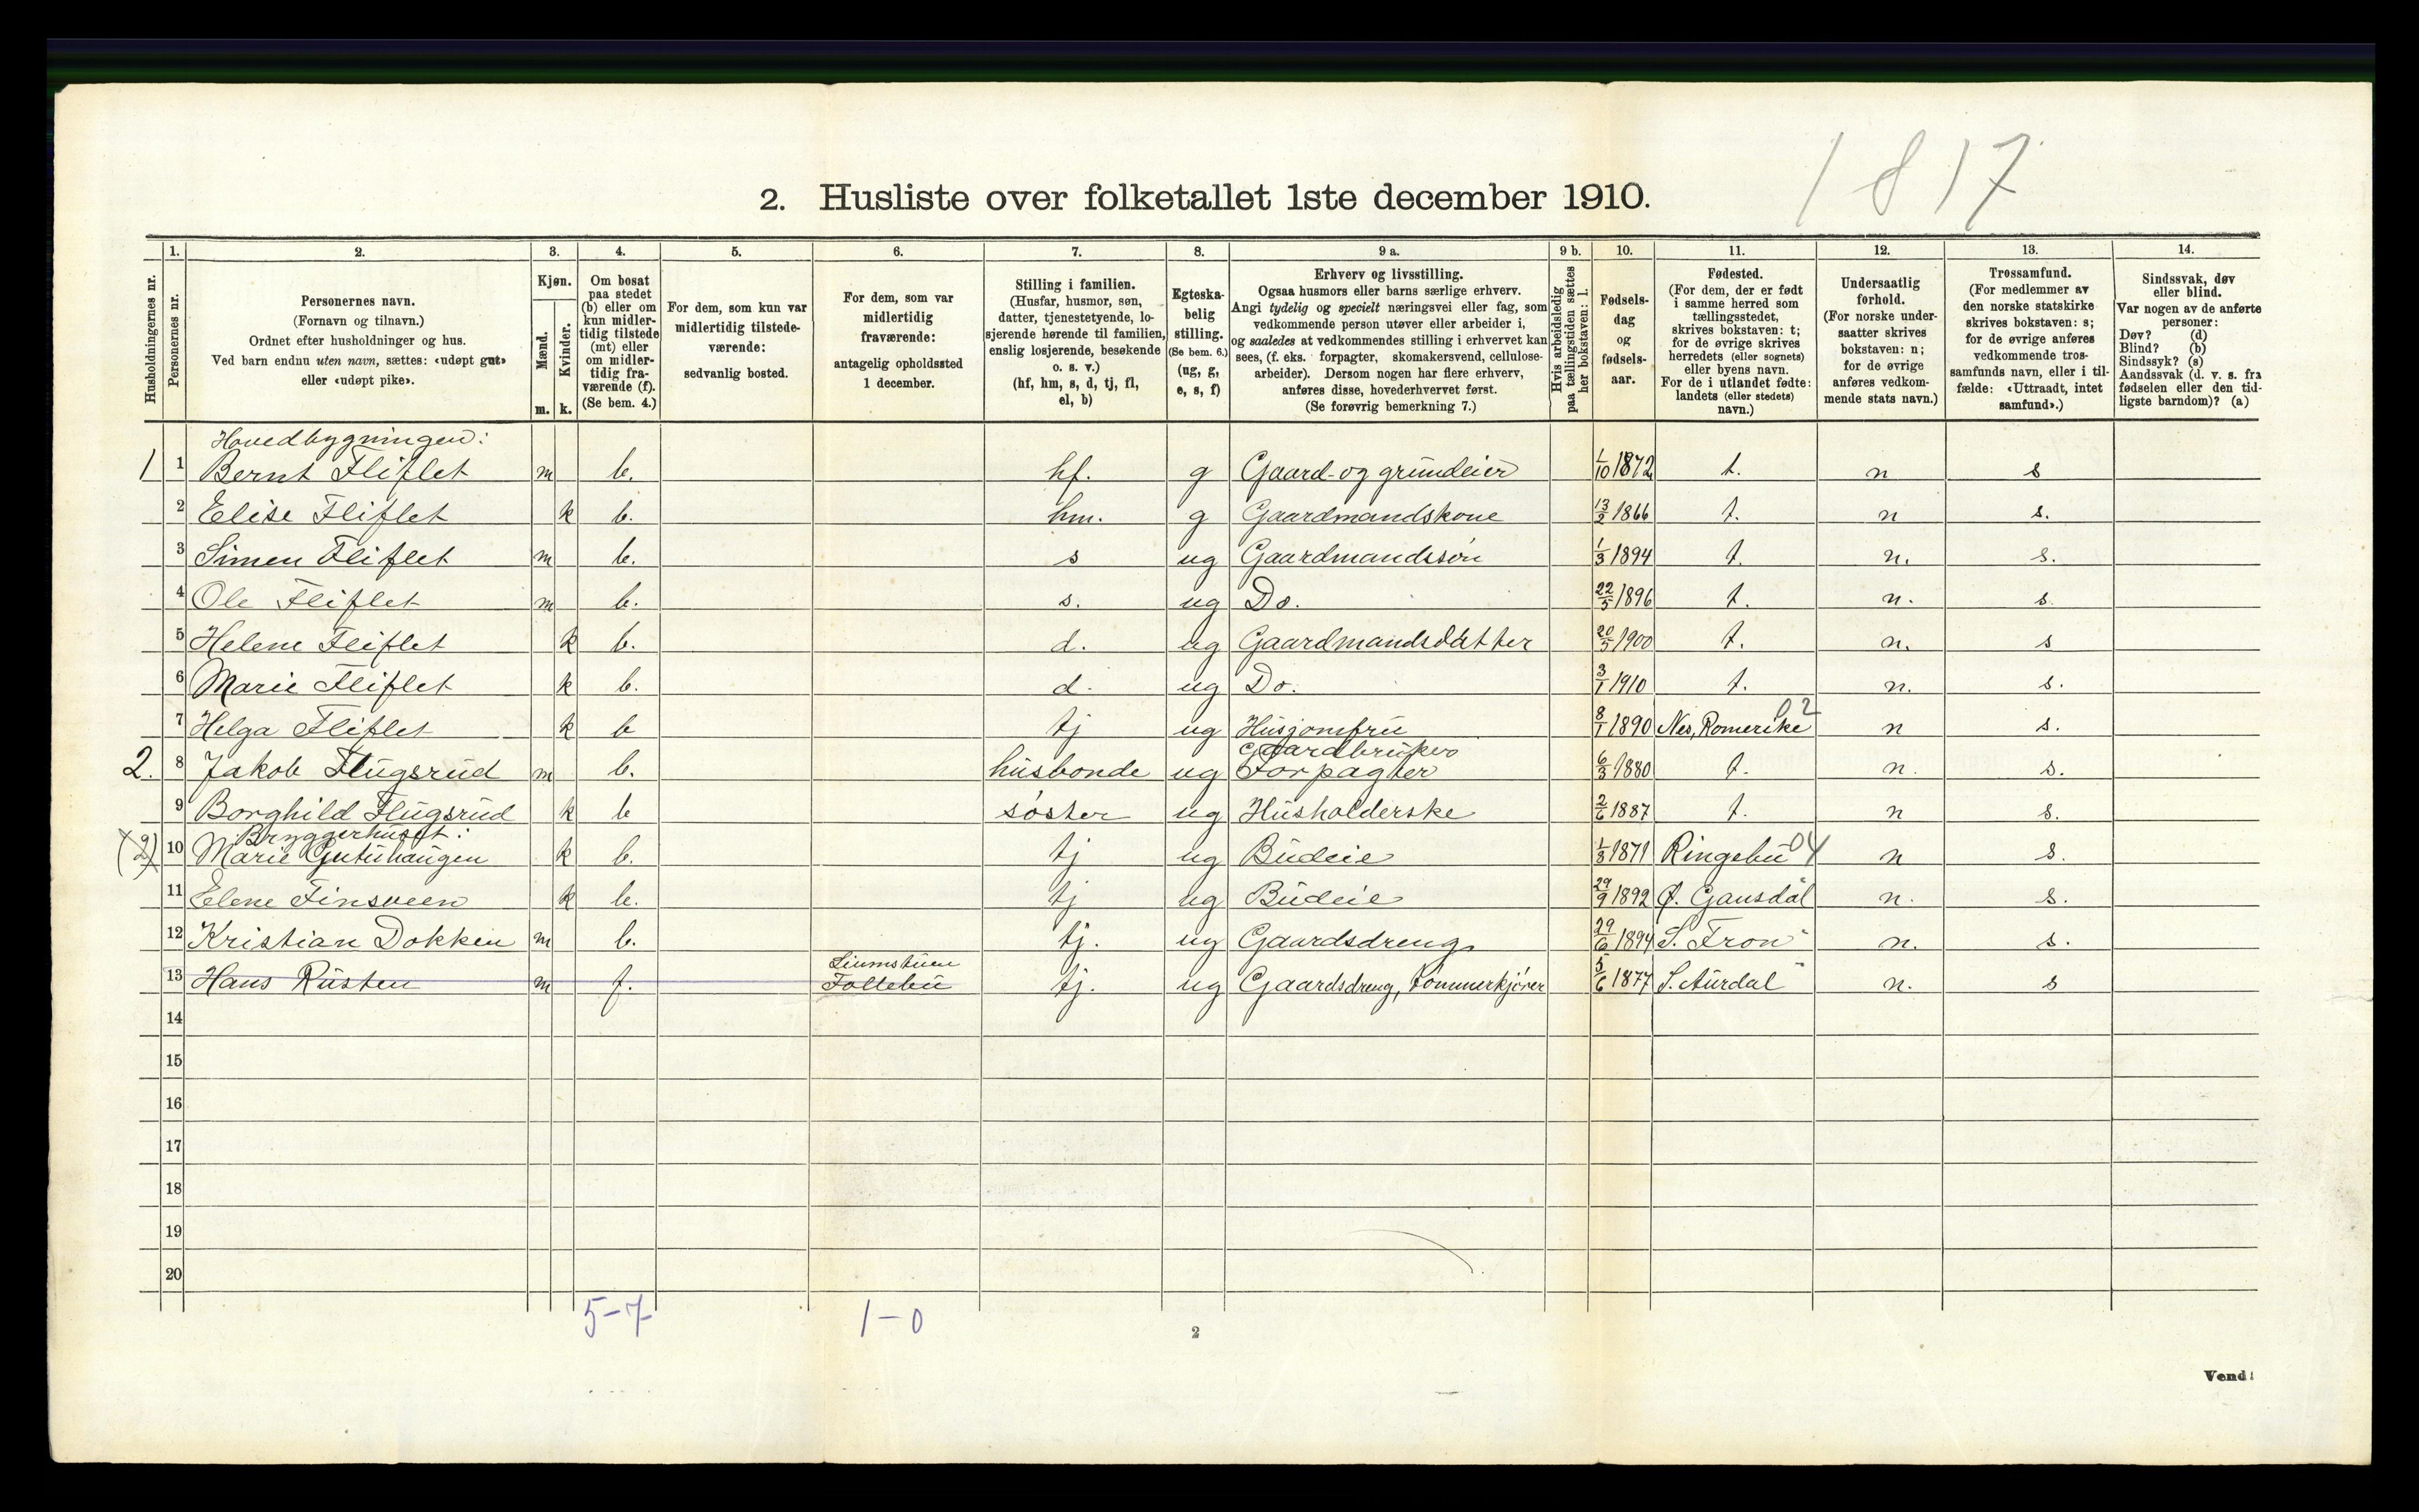 1817
2. Husliste over folketallet 1ste december 1910.
Husholdningernes nr.
1.
Personernes nr.
2.
Personernes navn.
(Fornavn og tilnavn.)
Ordnet efter husholdninger og hus.
Ved barn endnu uten navn, sættes: «udøpt gut»
eller «udøpt pike».
3.
Kjøn.
Mænd.
Kvinder.
m. k.
4.
Om bosat
paa stedet
(b) eller om
kun midler-
tidig tilstede
(mt) eller
om midler-
tidig fra-
værende (f).
(Se bem. 4.)
5.
For dem, som kun var
midlertidig tilstede-
værende:
sedvanlig bosted.
6.
For dem, som var
midlertidig
fraværende:
antagelig opholdssted
1 december.
7.
Stilling i familien.
(Husfar, husmor, søn,
datter, tjenestetyende, lo-
sjerende hørende til familien,
enslig losjerende, besøkende
o. s. v.)
(hf, hm, s, d, tj, fl,
el, b)
8.
Egteska-
belig
stilling.
(Se bem. 6.)
(ug, g,
e, s, f)
9 a.
Erhverv og livsstilling.
Ogsaa husmors eller barns særlige erhverv.
Angi tydelig og specielt næringsvei eller fag, som
vedkommende person utøver eller arbeider i,
og saaledes at vedkommendes stilling i erhvervet kan
sees, (f. eks. forpagter, skomakersvend, cellulose-
arbeider). Dersom nogen har flere erhverv,
anføres disse, hovederhvervet først.
(Se forøvrig bemerkning 7.)
9 b.
Hvis arbeidsledig
paa tællingstiden sættes
her bokstaven: l.
10.
Fødsels-
dag
og
fødsels-
aar.
11.
Fødested.
(For dem, der er født
i samme herred som
tællingsstedet,
skrives bokstaven: t;
for de øvrige skrives
herredets (eller sognets)
eller byens navn.
For de i utlandet fødte:
landets (eller stedets)
navn.)
12.
Undersaatlig
forhold.
(For norske under-
saatter skrives
bokstaven: n;
for de øvrige
anføres vedkom-
mende stats navn.)
13.
Trossamfund.
(For medlemmer av
den norske statskirke
skrives bokstaven: s;
for de øvrige anføres
vedkommende tros-
samfunds navn, eller i til-
fælde: «Uttraadt, intet
samfund».)
14.
Sindssvak, døv
eller blind.
Var nogen av de anførte
personer:
Døv? (d)
Blind? (b)
Sindssyk? (s)
Aandssvak (d. v. s. fra
fødselen eller den tid-
ligste barndom)? (a)
Hovedbygningen:
1 1 Bernt Fliflet m b. hf. g Gaard- og grundeier 1/10 1872 t. n s
2 Elise Fliflet k b. hm. g Gaardmandskone 13/2 1866 t. n s.
3 Simen Fliflet m b. s ug Gaardmandssøn 1/3 1894 t. n. s.
4 Ole Fliflet m b. s. ug Do. 22/5 1896 t. n. s.
5 Helene Fliflet k b. d. ug Gaardmandsdatter 20/5 1900 t. n. s
6 Marie Fliflet k b. d. ug Do. 3/1 1910 t. n. s.
7 Helga Fliflet k b tj ug Husjomfru 8/1 1890 Nes, Romerike 02 n s.
Gaardbruker
2. 8 Jakob Flugsrud m b. husbonde ug Forpagter 6/3 1880 t. n. s.
9 Borghild Flugsrud k b søster ug Husholderske 2/6 1887 t. n s.
Bryggerhuset:
10 Marie k b. tj ug Budeie 1/3 1871 Ringebu 04 n s.
11 Elene Finsveen k b. tj ug Budeie 29/9 1892 Ø. Gausdal n. s.
12 Kristian Dokken m b. tj. ug Gaardsdreng 29/6 1894 S. Fron n. s.
13 Hans Rusten m f. Liumstuen Follebu tj. ug Gaardsdreng, tømmerkjører 5/6 1877 S. Aurdal n. s
14
15
16
17
18
19
20
5-7 1-0
2
Vend!